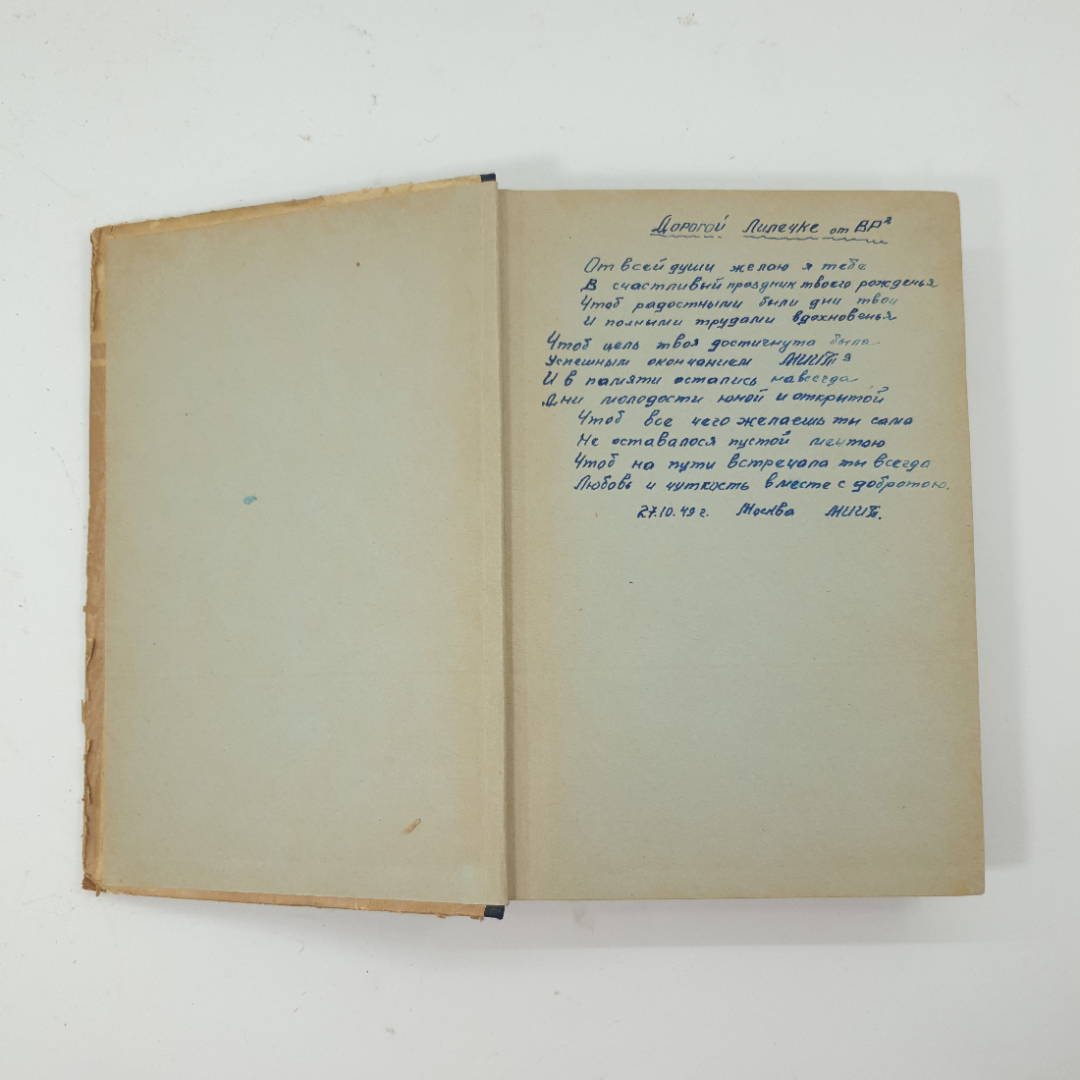 Дорогой Лилечке от ВР²
От всей души желаю я тебе
В счастливый праздник твоего рожденья
Чтоб радостными были дни твои
И полными трудами вдохновенья
Чтоб цель твоя достигнута была
Успешным окончанием МИИТа
И в памяти остались навсегда
Дни молодости юной и открытой
Чтоб все чего желаешь ты сама
Не оставалося пустой мечтою
Чтоб на пути встречала ты всегда
Любовь и чуткость вместе с добротою.
27.10.49 г. Москва МИИТ.